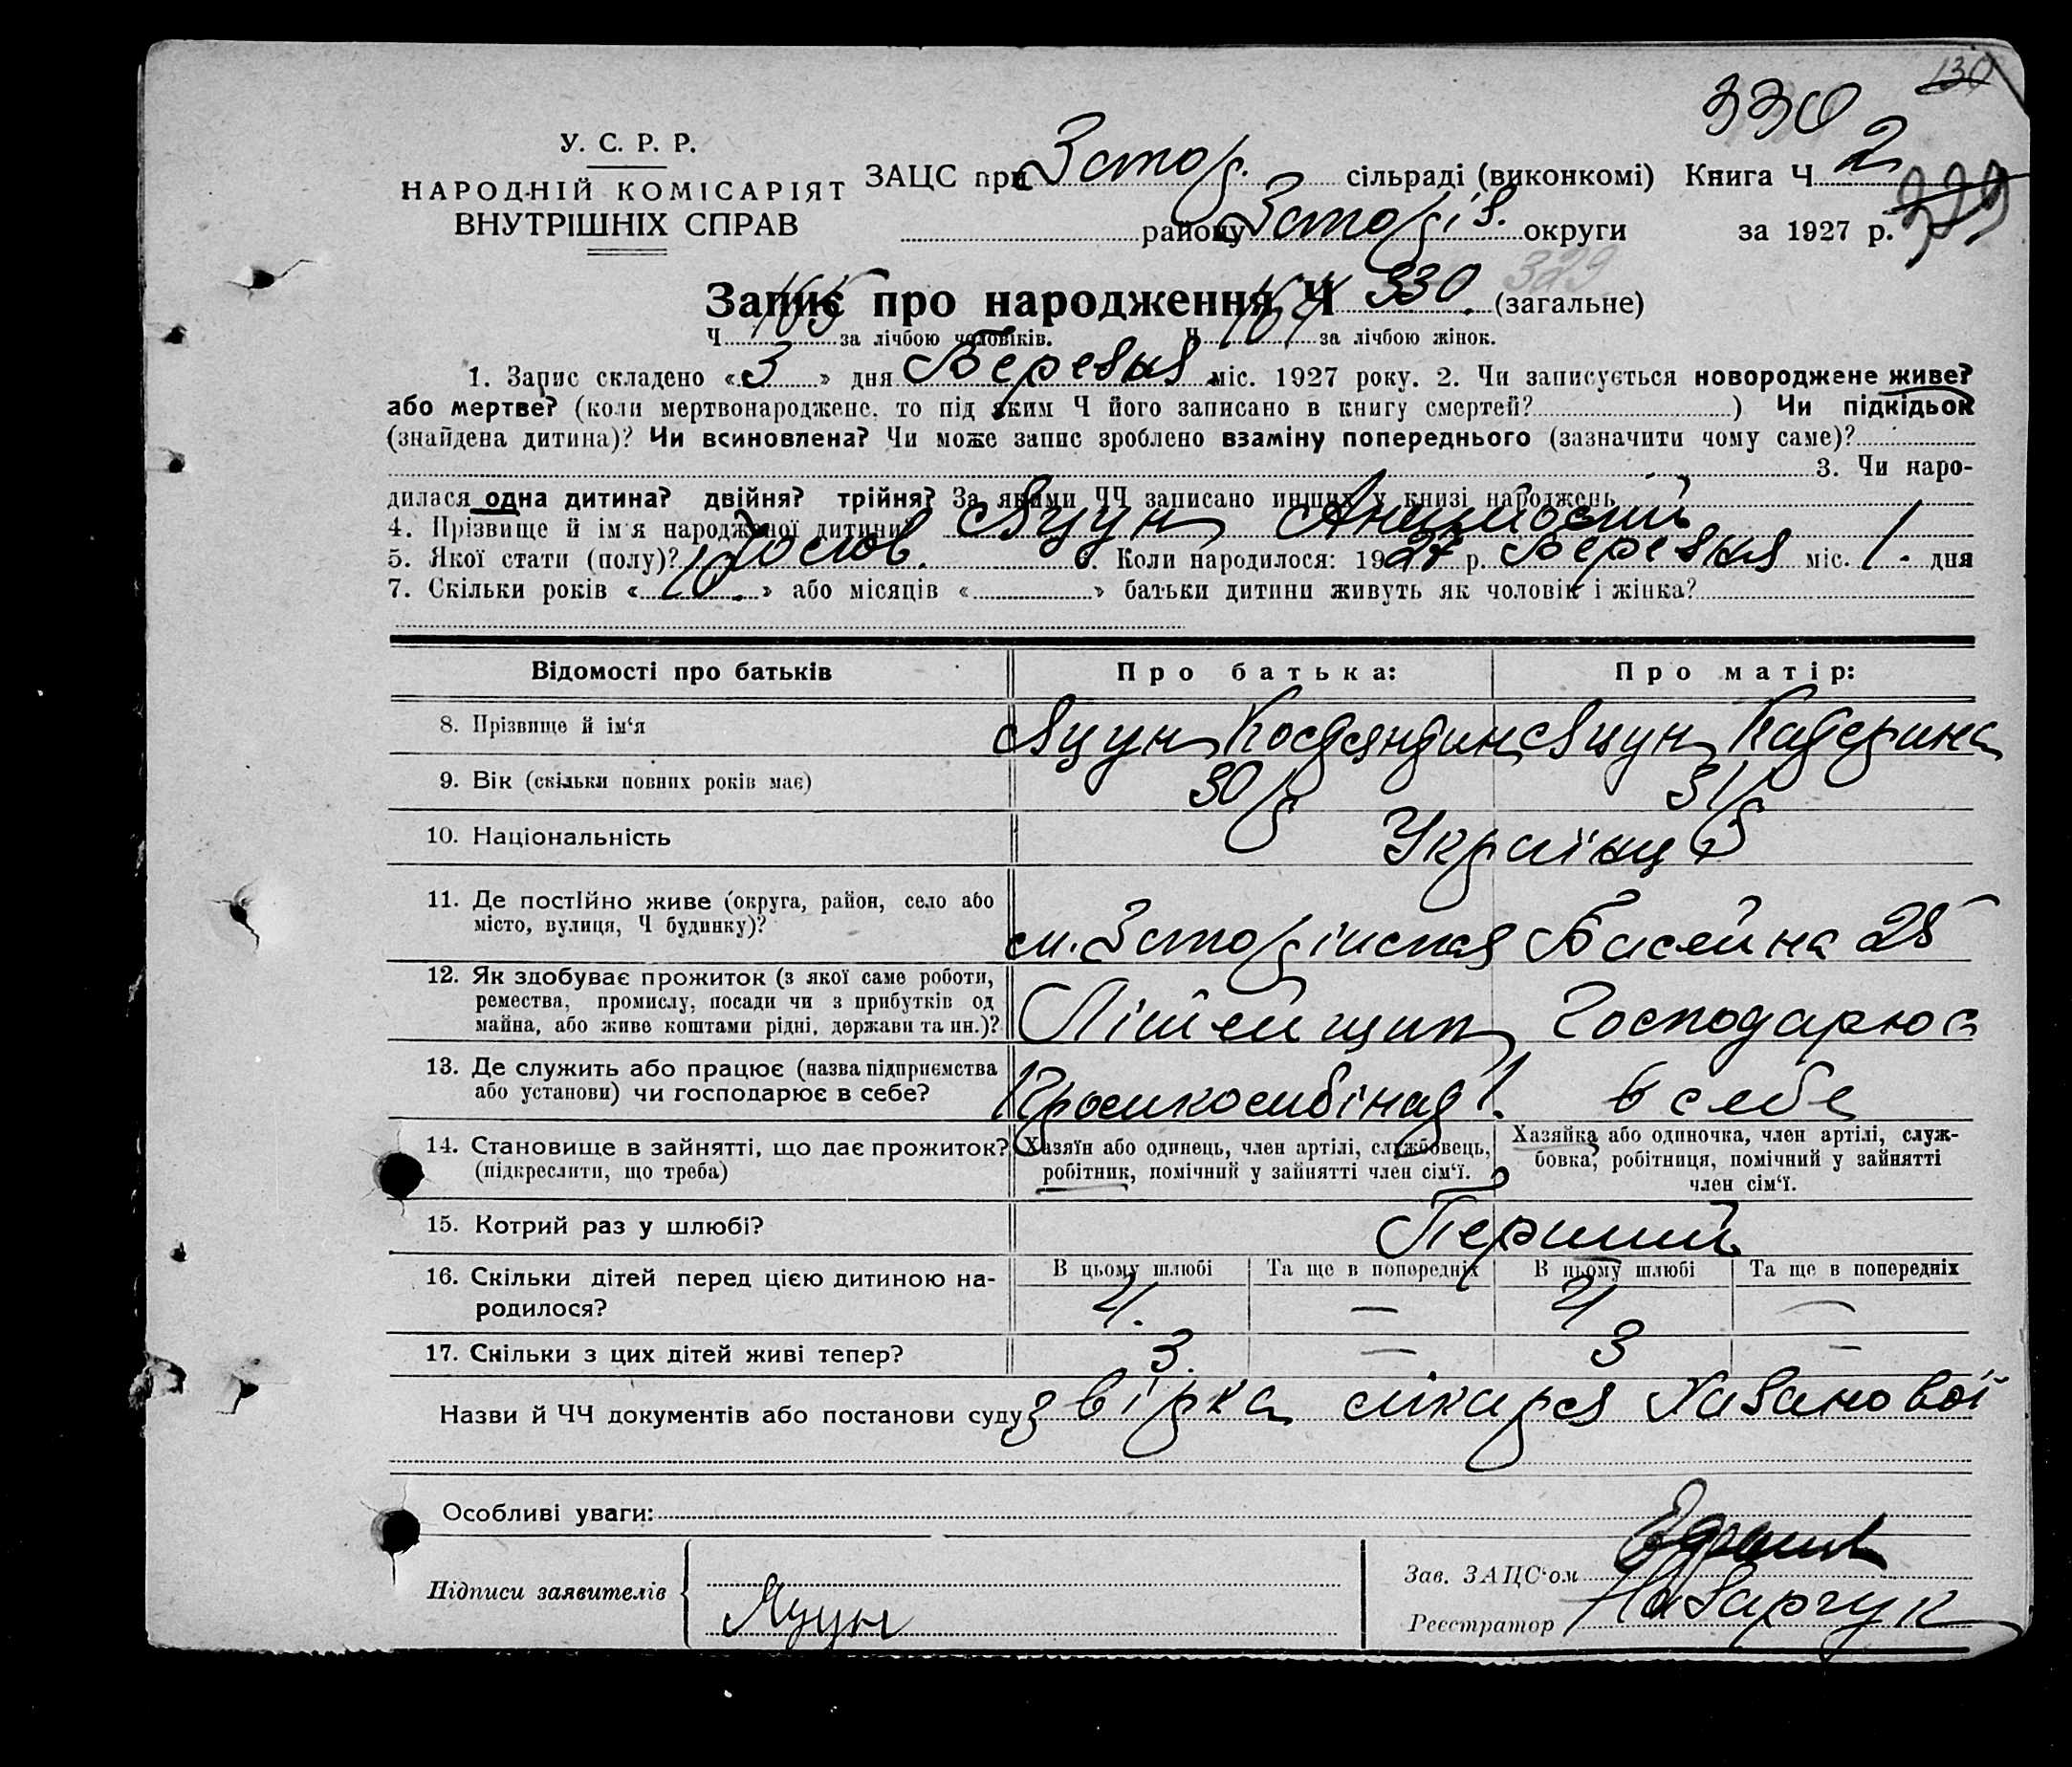 130
330
У. С. Р. Р.
НАРОДНІЙ КОМІСАРІЯТ
ВНУТРІШНІХ СПРАВ
ЗАЦС при Запор. сільраді (виконкомі) Книга Ч 2
району Запоріз. округи за 1927 р. 329
Запис про народження Ч 330. (загальне) 329
Ч 165 за лічбою чоловіків. Ч 164 за лічбою жінок.
1. Запис складено «3» дня Березня міс. 1927 року. 2. Чи записується новороджене живе?
або мертве? (коли мертвонароджене, то під яким Ч його записано в книгу смертей? ) Чи підкідьок
(знайдена дитина)? Чи всиновлена? Чи може запис зроблено взаміну попереднього (зазначити чому саме)?
3. Чи наро-
дилася одна дитина? двійня? трійня? За якими ЧЧ записано инших у книзі народжень
4. Прізвище й ім'я народженої дитини? Яцун
5. Якої стати (полу)? Чолов. 6. Коли народилося: 1927 р. Березня міс. 1. дня
7. Скільки років «10.» або місяців « » батьки дитини живуть як чоловік і жінка?
Відомості про батьків Про батька: Про матір:
8. Прізвище й ім'я Яцун Костянтин Яцун Катерина
9. Вік (скільки повних років має) 30 р 31 р
10. Національність Українці
11. Де постійно живе (округа, район, село або
місто, вулиця, Ч будинку)? м. Запоріжжя Басейна 25
12. Як здобуває прожиток (з якої саме роботи,
ремества, промислу, посади чи з прибутків од
майна, або живе коштами рідні, держави та ин.)? Літейщик Господарює
13. Де служить або працює (назва підприємства
або установи) чи господарює в себе? Промкомбінат. в себе
14. Становище в зайнятті, що дає прожиток?
(підкреслити, що треба)
Хазяїн або одинець, член артілі, службовець,
робітник, помічний у зайнятті член сім'ї.
Хазяйка або одиночка, член артілі, служ-
бовка, робітниця, помічний у зайнятті
член сім'ї.
15. Котрий раз у шлюбі? Перший
16. Скільки дітей перед цією дитиною на-
родилося?
В цьому шлюбі Та ще в попередніх В цьому шлюбі Та ще в попередніх
4. — 4 —
17. Скільки з цих дітей живі тепер? 3. — 3 —
Назви й ЧЧ документів або постанови суду Довірка лікаря Хазанової
Особливі уваги:
Підписи заявителів Яцун
Зав. ЗАЦС'ом
Реєстратор Назарчук